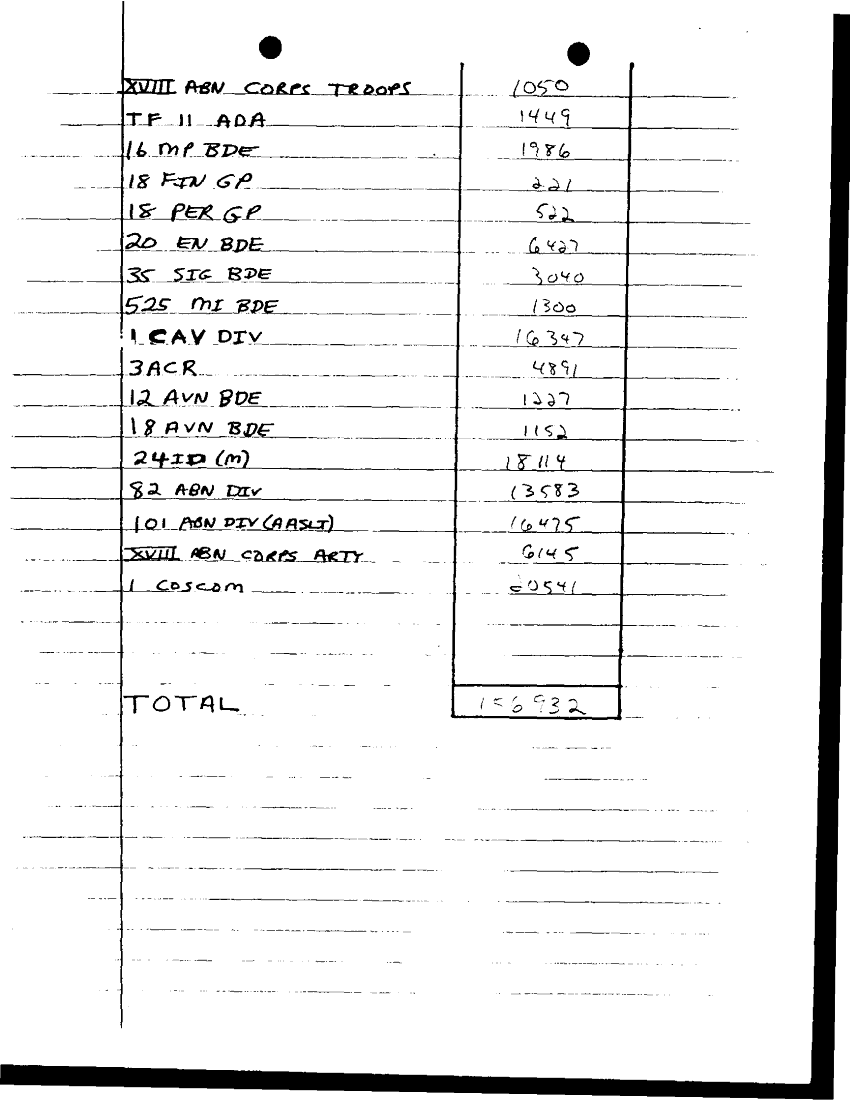 XVIII ABN CORPS TROOPS 1050
TF 11 ADA 1449
16 MP BDE 1986
18 FIN GP 221
18 PER GP 522
20 EN BDE 6427
35 SIG BDE 3040
525 MI BDE 1300
1 CAV DIV 16347
3 ACR 4891
12 AVN BDE 1227
18 AVN BDE 1152
24 ID (M) 18114
82 ABN DIV 13583
101 ABN DIV (AASLT) 16475
XVIII ABN CORPS ARTY 6145
1 COSCOM 20541
TOTAL 156932